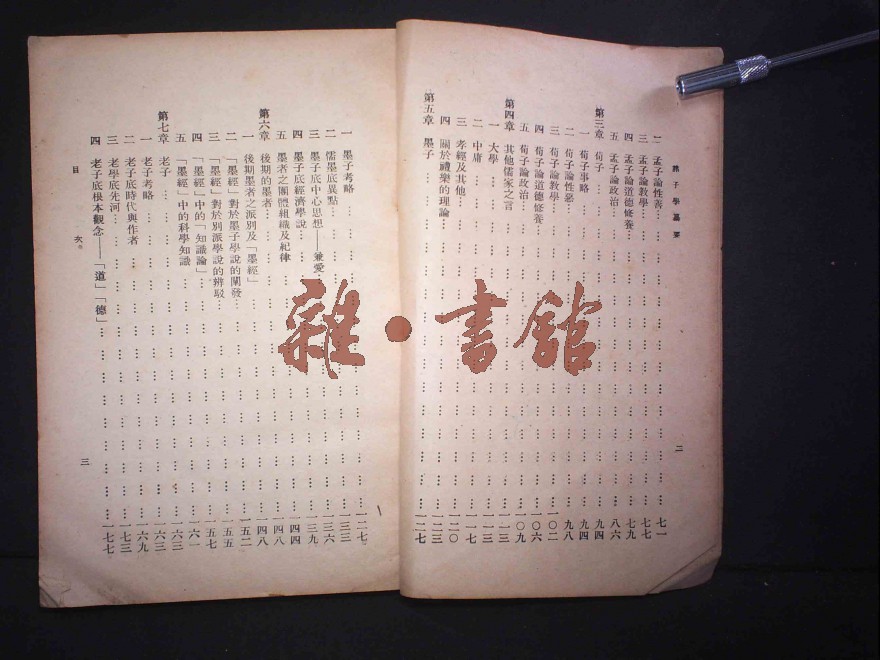 諸子學纂要
二 孟子論性善……七一
三 孟子論教學……七七
四 孟子論道德修養……七九
五 孟子論政治……八六
第三章 荀子……九四
一 荀子事略……九四
二 荀子論性惡……九八
三 荀子論教學……一〇二
四 荀子論道德修養……一〇六
五 荀子論政治……一〇九
第四章 其他儒家之言……一一三
一 大學……一一三
二 中庸……一一七
三 孝經及其他……一二〇
四 關於禮樂的理論……一二三
第五章 墨子……一二七
二
一 墨子考略……一二七
二 儒墨底異點……一三三
三 墨子底中心思想——兼愛……一三六
四 墨子底經濟學說……一三九
五 墨者之團體組織及紀律……一四四
第六章 後期的墨者……一四八
一 後期墨者之派別及「墨經」……一四八
二 「墨經」對於墨子學說的闡發……一五二
三 「墨經」對於別派學說的辨駁……一五五
四 「墨經」中的「知識論」……一五七
五 「墨經」中的科學知識……一六一
第七章 老子……一六三
一 老子考略……一六三
二 老子底時代與作者……一六九
三 老學底先河……一七三
四 老子底根本觀念——「道」「德」……一七七
目次
三
雜·書舘